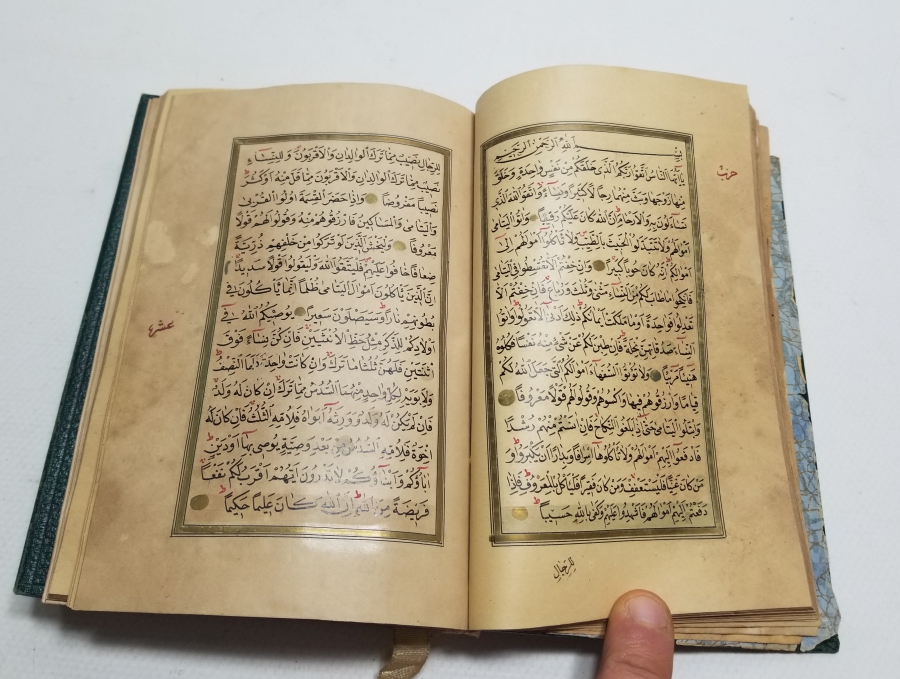 بِسْمِ اللهِ الرَّحْمٰنِ الرَّحِيمِ
يَا اَيُّهَا النَّاسُ اتَّقُوا رَبَّكُمُ الَّذِي خَلَقَكُمْ مِنْ نَفْسٍ وَاحِدَةٍ وَخَلَقَ
حزب
مِنْهَا زَوْجَهَا وَبَثَّ مِنْهُمَا رِجَالًا كَثِيرًا وَنِسَاءً وَاتَّقُوا اللهَ الَّذِي
تَسَاءَلُونَ بِهِ وَالْاَرْحَامَ اِنَّ اللهَ كَانَ عَلَيْكُمْ رَقِيبًا وَاٰتُوا الْيَتَامٰى
اَمْوَالَهُمْ وَلَا تَتَبَدَّلُوا الْخَبِيثَ بِالطَّيِّبِ وَلَا تَأْكُلُوا اَمْوَالَهُمْ اِلٰى
اَمْوَالِكُمْ اِنَّهُ كَانَ حُوبًا كَبِيرًا وَاِنْ خِفْتُمْ اَلَّا تُقْسِطُوا فِي الْيَتَامٰى
فَانْكِحُوا مَا طَابَ لَكُمْ مِنَ النِّسَاءِ مَثْنٰى وَثُلٰثَ وَرُبَاعَ فَاِنْ خِفْتُمْ اَلَّا
تَعْدِلُوا فَوَاحِدَةً اَوْ مَا مَلَكَتْ اَيْمَانُكُمْ ذٰلِكَ اَدْنٰى اَلَّا تَعُولُوا وَاٰتُوا
النِّسَاءَ صَدُقَاتِهِنَّ نِحْلَةً فَاِنْ طِبْنَ لَكُمْ عَنْ شَيْءٍ مِنْهُ نَفْسًا فَكُلُوهُ
هَنِيئًا مَرِيئًا وَلَا تُؤْتُوا السُّفَهَاءَ اَمْوَالَكُمُ الَّتِي جَعَلَ اللهُ لَكُمْ
قِيَامًا وَارْزُقُوهُمْ فِيهَا وَاكْسُوهُمْ وَقُولُوا لَهُمْ قَوْلًا مَعْرُوفًا
وَابْتَلُوا الْيَتَامٰى حَتّٰى اِذَا بَلَغُوا النِّكَاحَ فَاِنْ اٰنَسْتُمْ مِنْهُمْ رُشْدًا
فَادْفَعُوا اِلَيْهِمْ اَمْوَالَهُمْ وَلَا تَأْكُلُوهَا اِسْرَافًا وَبِدَارًا اَنْ يَكْبَرُوا وَ
مَنْ كَانَ غَنِيًّا فَلْيَسْتَعْفِفْ وَمَنْ كَانَ فَقِيرًا فَلْيَأْكُلْ بِالْمَعْرُوفِ فَاِذَا
دَفَعْتُمْ اِلَيْهِمْ اَمْوَالَهُمْ فَاَشْهِدُوا عَلَيْهِمْ وَكَفٰى بِاللهِ حَسِيبًا
لِلرِّجَالِ
لِلرِّجَالِ نَصِيبٌ مِمَّا تَرَكَ الْوَالِدَانِ وَالْاَقْرَبُونَ وَلِلنِّسَاءِ
نَصِيبٌ مِمَّا تَرَكَ الْوَالِدَانِ وَالْاَقْرَبُونَ مِمَّا قَلَّ مِنْهُ اَوْ كَثُرَ
نَصِيبًا مَفْرُوضًا وَاِذَا حَضَرَ الْقِسْمَةَ اُولُوا الْقُرْبٰى
وَالْيَتَامٰى وَالْمَسَاكِينُ فَارْزُقُوهُمْ مِنْهُ وَقُولُوا لَهُمْ قَوْلًا
مَعْرُوفًا وَلْيَخْشَ الَّذِينَ لَوْ تَرَكُوا مِنْ خَلْفِهِمْ ذُرِّيَّةً
ضِعَافًا خَافُوا عَلَيْهِمْ فَلْيَتَّقُوا اللهَ وَلْيَقُولُوا قَوْلًا سَدِيدًا
اِنَّ الَّذِينَ يَأْكُلُونَ اَمْوَالَ الْيَتَامٰى ظُلْمًا اِنَّمَا يَأْكُلُونَ فِي
بُطُونِهِمْ نَارًا وَسَيَصْلَوْنَ سَعِيرًا يُوصِيكُمُ اللهُ فِي
عشر
اَوْلَادِكُمْ لِلذَّكَرِ مِثْلُ حَظِّ الْاُنْثَيَيْنِ فَاِنْ كُنَّ نِسَاءً فَوْقَ
اثْنَتَيْنِ فَلَهُنَّ ثُلُثَا مَا تَرَكَ وَاِنْ كَانَتْ وَاحِدَةً فَلَهَا النِّصْفُ
وَلِاَبَوَيْهِ لِكُلِّ وَاحِدٍ مِنْهُمَا السُّدُسُ مِمَّا تَرَكَ اِنْ كَانَ لَهُ وَلَدٌ
فَاِنْ لَمْ يَكُنْ لَهُ وَلَدٌ وَوَرِثَهُ اَبَوَاهُ فَلِاُمِّهِ الثُّلُثُ فَاِنْ كَانَ لَهُ
اِخْوَةٌ فَلِاُمِّهِ السُّدُسُ مِنْ بَعْدِ وَصِيَّةٍ يُوصِي بِهَا اَوْ دَيْنٍ
اٰبَاؤُكُمْ وَاَبْنَاؤُكُمْ لَا تَدْرُونَ اَيُّهُمْ اَقْرَبُ لَكُمْ نَفْعًا
فَرِيضَةً مِنَ اللهِ اِنَّ اللهَ كَانَ عَلِيمًا حَكِيمًا